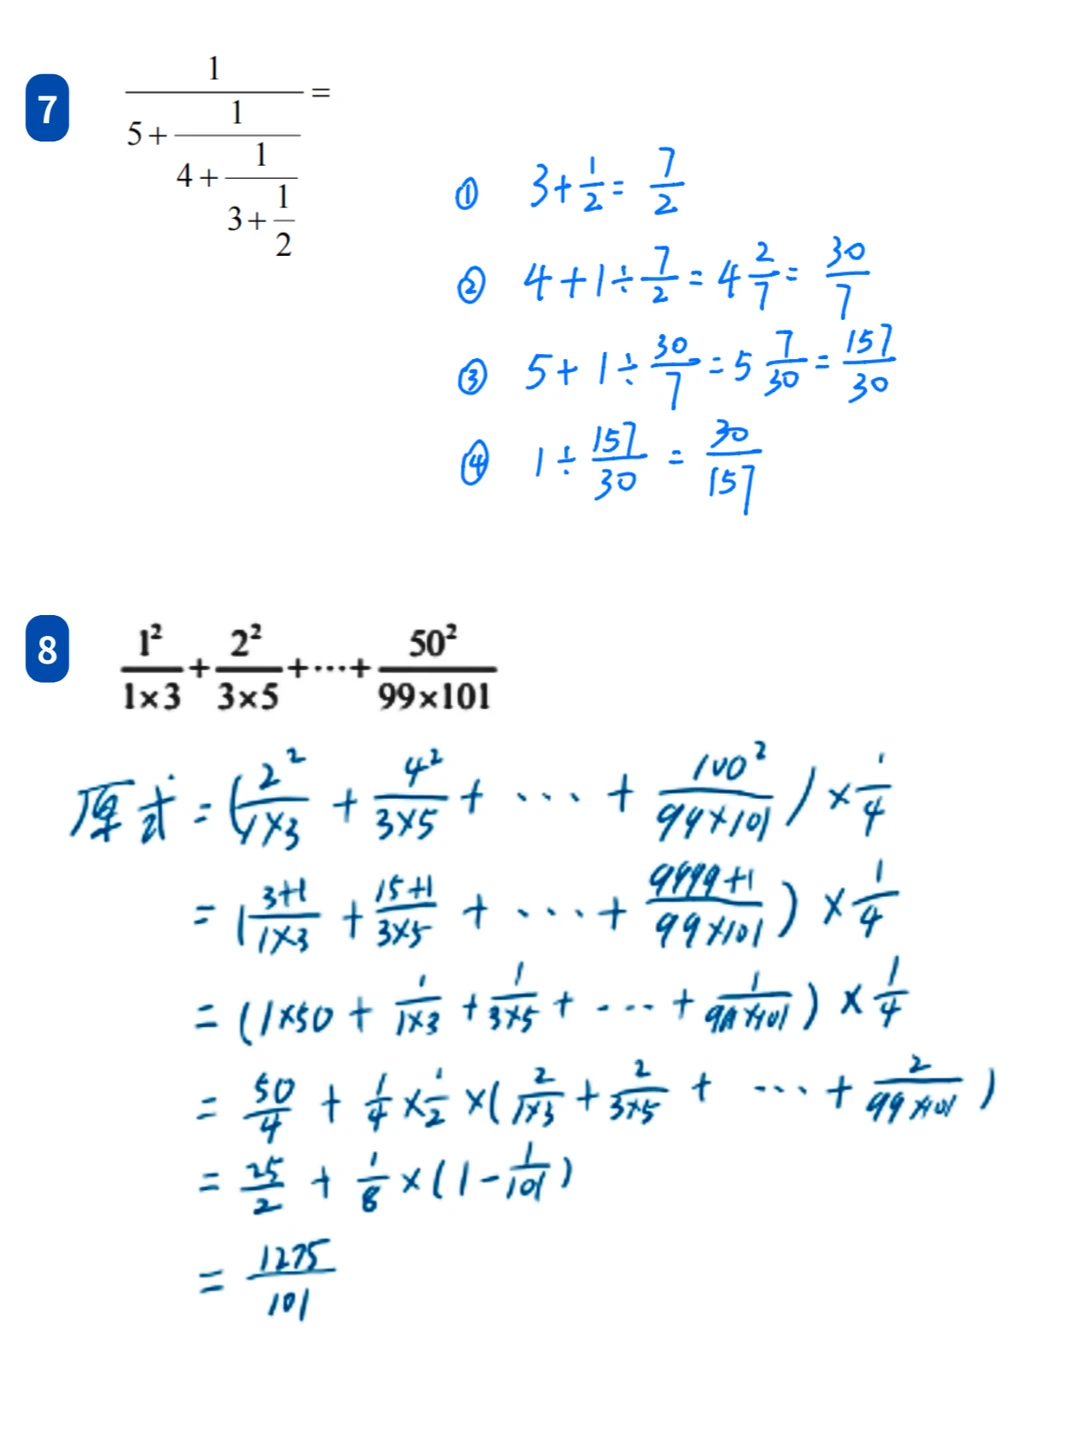 7
1/(5+1/(4+1/(3+1/2)))=
① 3+1/2=7/2
② 4+1÷7/2=4 2/7=30/7
③ 5+1÷30/7=5 7/30=157/30
④ 1÷157/30=30/157
8
1²/(1×3)+2²/(3×5)+···+50²/(99×101)
原式=(2²/(1×3)+4²/(3×5)+···+100²/(99×101))×1/4
=((3+1)/(1×3)+(15+1)/(3×5)+···+(9999+1)/(99×101))×1/4
=(1×50+1/(1×3)+1/(3×5)+···+1/(99×101))×1/4
=50/4+1/4×1/2×(2/(1×3)+2/(3×5)+···+2/(99×101))
=25/2+1/8×(1-1/101)
=1275/101